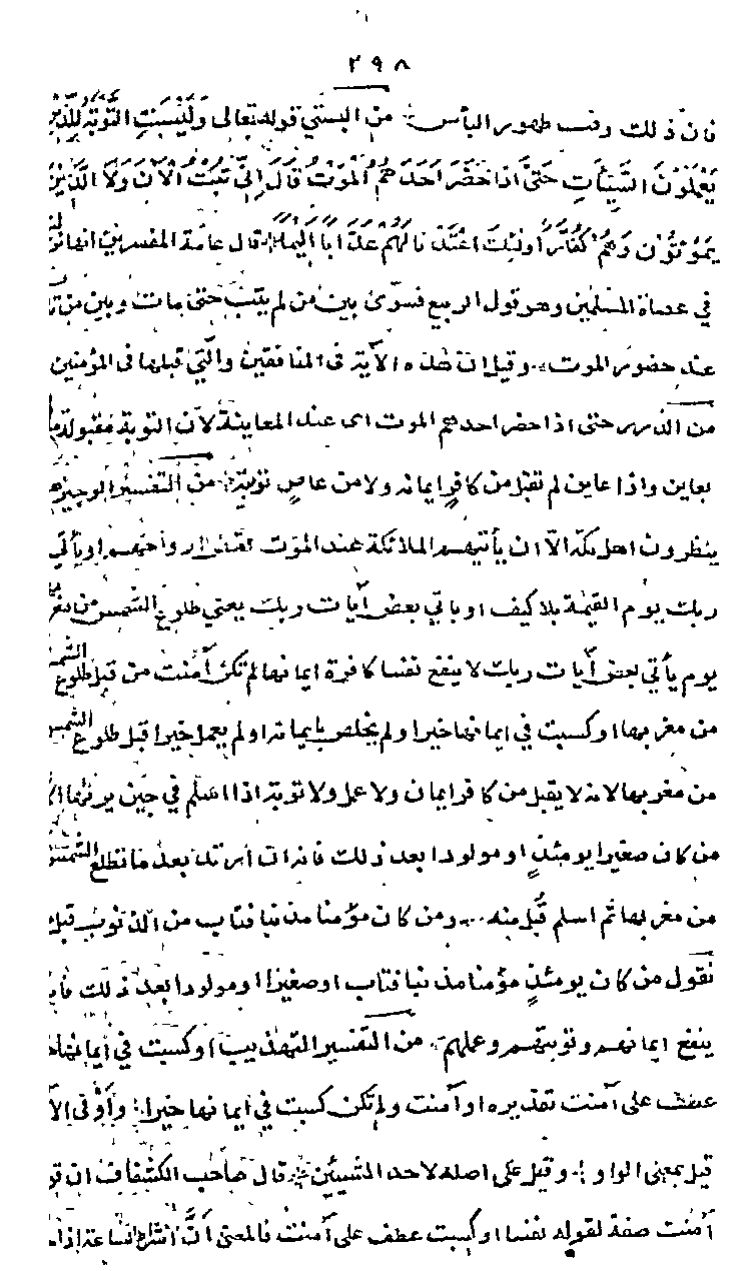 ٢٩٨
فان ذلك وقت ظهور البأس من البستي قوله تعالى وَلَيْسَتِ التَّوْبَةُ لِلَّذِينَ
يَعْمَلُونَ السَّيِّئَاتِ حَتَّى إِذَا حَضَرَ أَحَدَهُمُ الْمَوْتُ قَالَ إِنِّي تُبْتُ الْآنَ وَلَا الَّذِينَ
يَمُوتُونَ وَهُمْ كُفَّارٌ أُولَئِكَ أَعْتَدْنَا لَهُمْ عَذَابًا أَلِيمًا قال عامة المفسرين انها
في عصاة المسلمين وهو قول الربيع فسوّى بين من لم يتب حتى مات وبين من
عند حضور الموت وقيل ان هذه الآية في المنافقين والتي قبلها في المؤمنين
من الدرر حتى اذا حضر احدهم الموت اى عند المعاينة لان التوبة مقبولة
يعاين واذا عاين لم تقبل من كافر ايمانه ولا من عاص توبة من التفسير الوجيز
ينظرون اهل مكة الّا ان يأتيهم الملائكة عند الموت لقبض ارواحهم او يأتي
ربك يوم القيمة بلا كيف او ياتي بعض آيات ربك يعني طلوع الشمس من
يوم يأتي بعض آيات ربك لا ينفع نفسا كافرة ايمانها لم تكن آمنت من قبل طلوع الشمس
من مغربها او كسبت في ايمانها خيرا ولم يخلص بايمانه او لم يعمل خيرا قبل طلوع الشمس
من مغربها لانه لا يقبل من كافر ايمان ولا عمل ولا توبة اذا اسلم في حين يرونها
من كان صغيرا يومئذٍ او مولودا بعد ذلك فانه ان ارتد بعد ما تطلع الشمس
من مغربها ثم اسلم قُبل منه ومن كان مؤمنا مذنبا فتاب من الذنوب قبل
نقول من كان يومئذٍ مؤمنا مذنبا فتاب او صغيرا او مولودا بعد ذلك
ينفع ايمانهم وتوبتهم وعملهم من التفسير التهذيب او كسبت في ايمانها
عطف على آمنت تقديره او آمنت ولم تكن كسبت في ايمانها خيرا واو في
قيل بمعنى الواو وقيل على اصله لاحد الشيئين قال صاحب الكشاف ان
آمنت صفة لقوله نفسا او كسبت عطف على آمنت فالمعنى انّ اشراط الساعة اذا